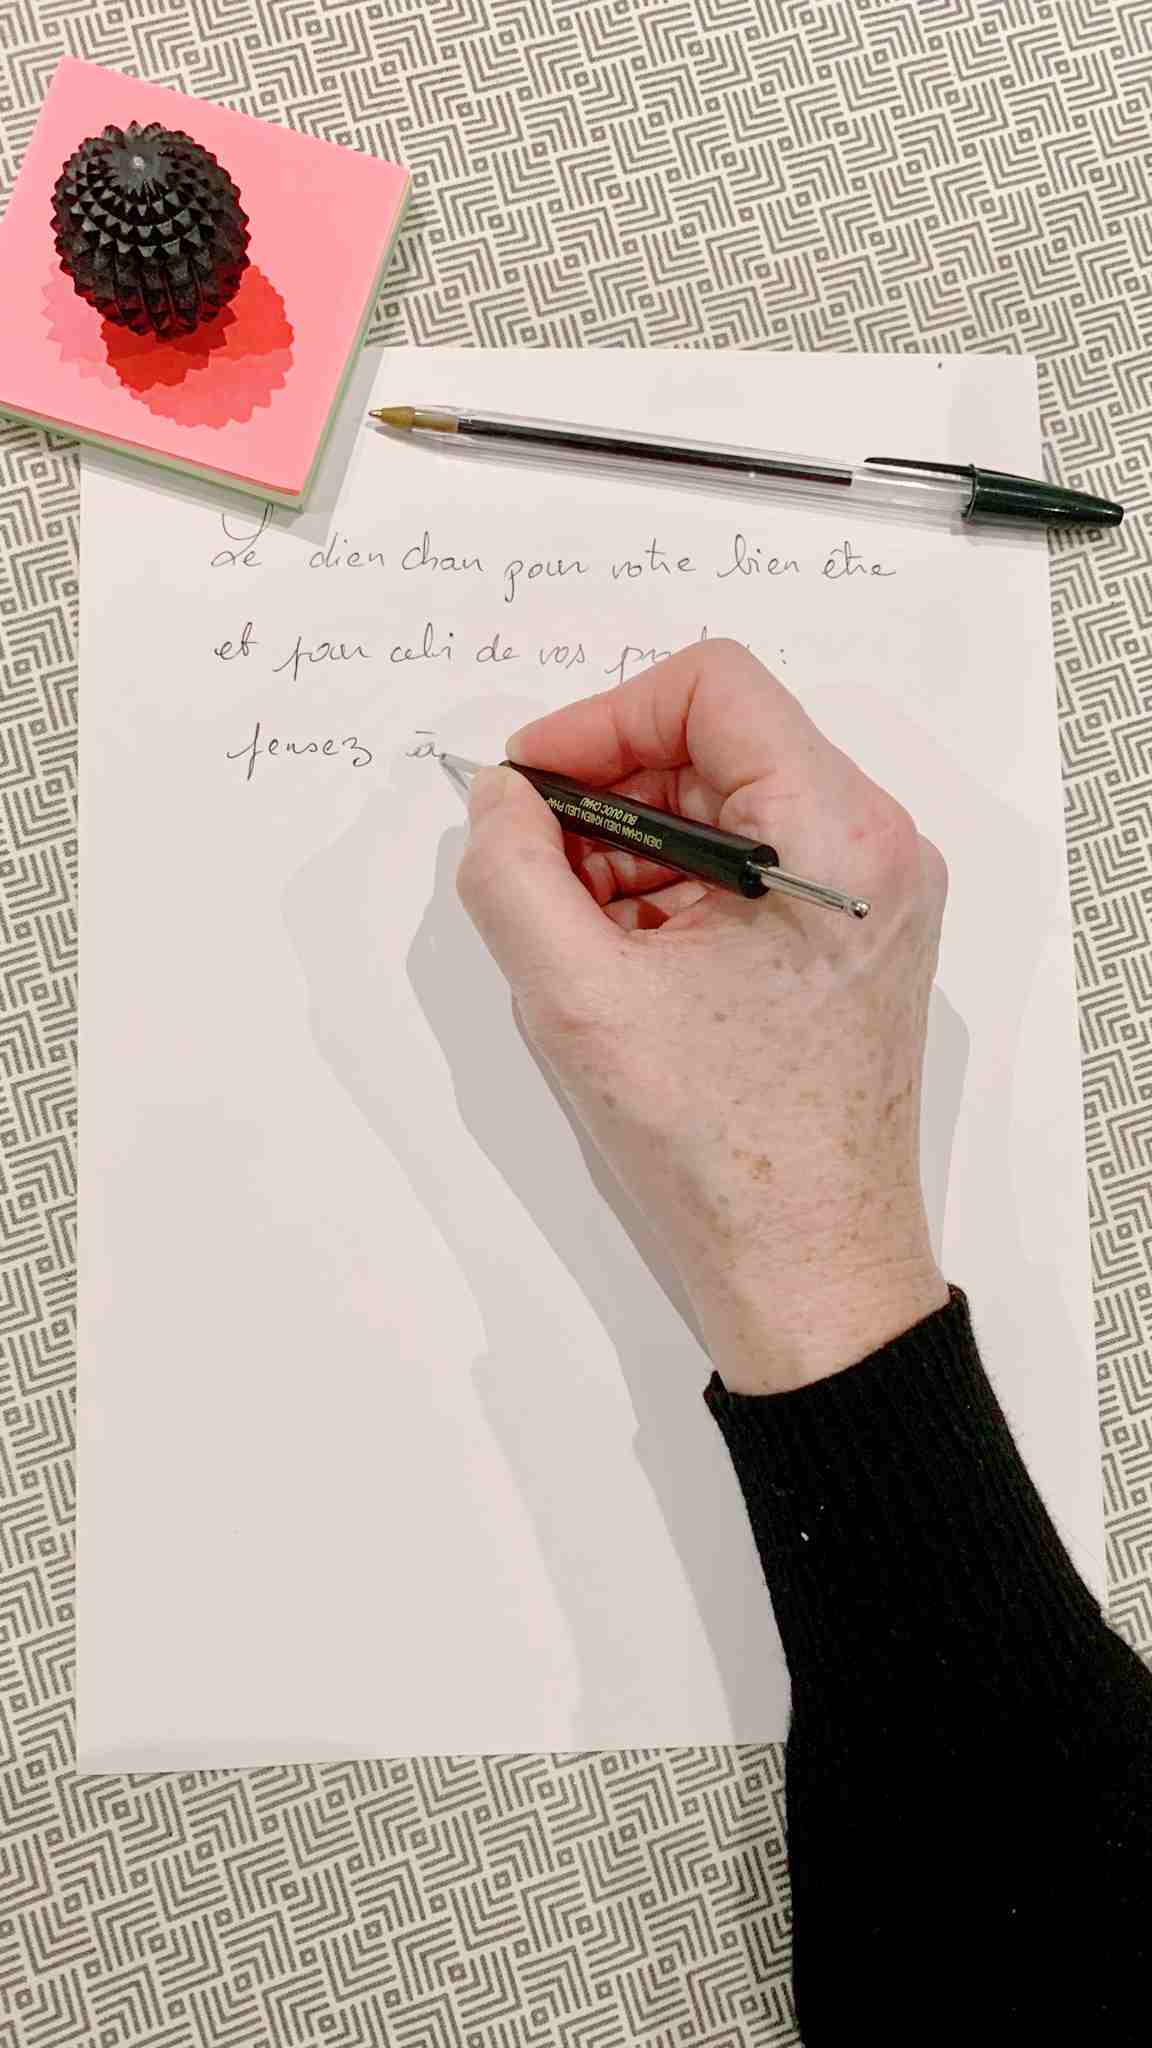 Le dien chan pour votre bien être
et pour celui de vos :
pensez à
DIEN CHAN DIEU KHIEN LIEU PHAP
BUI QUOC CHAU